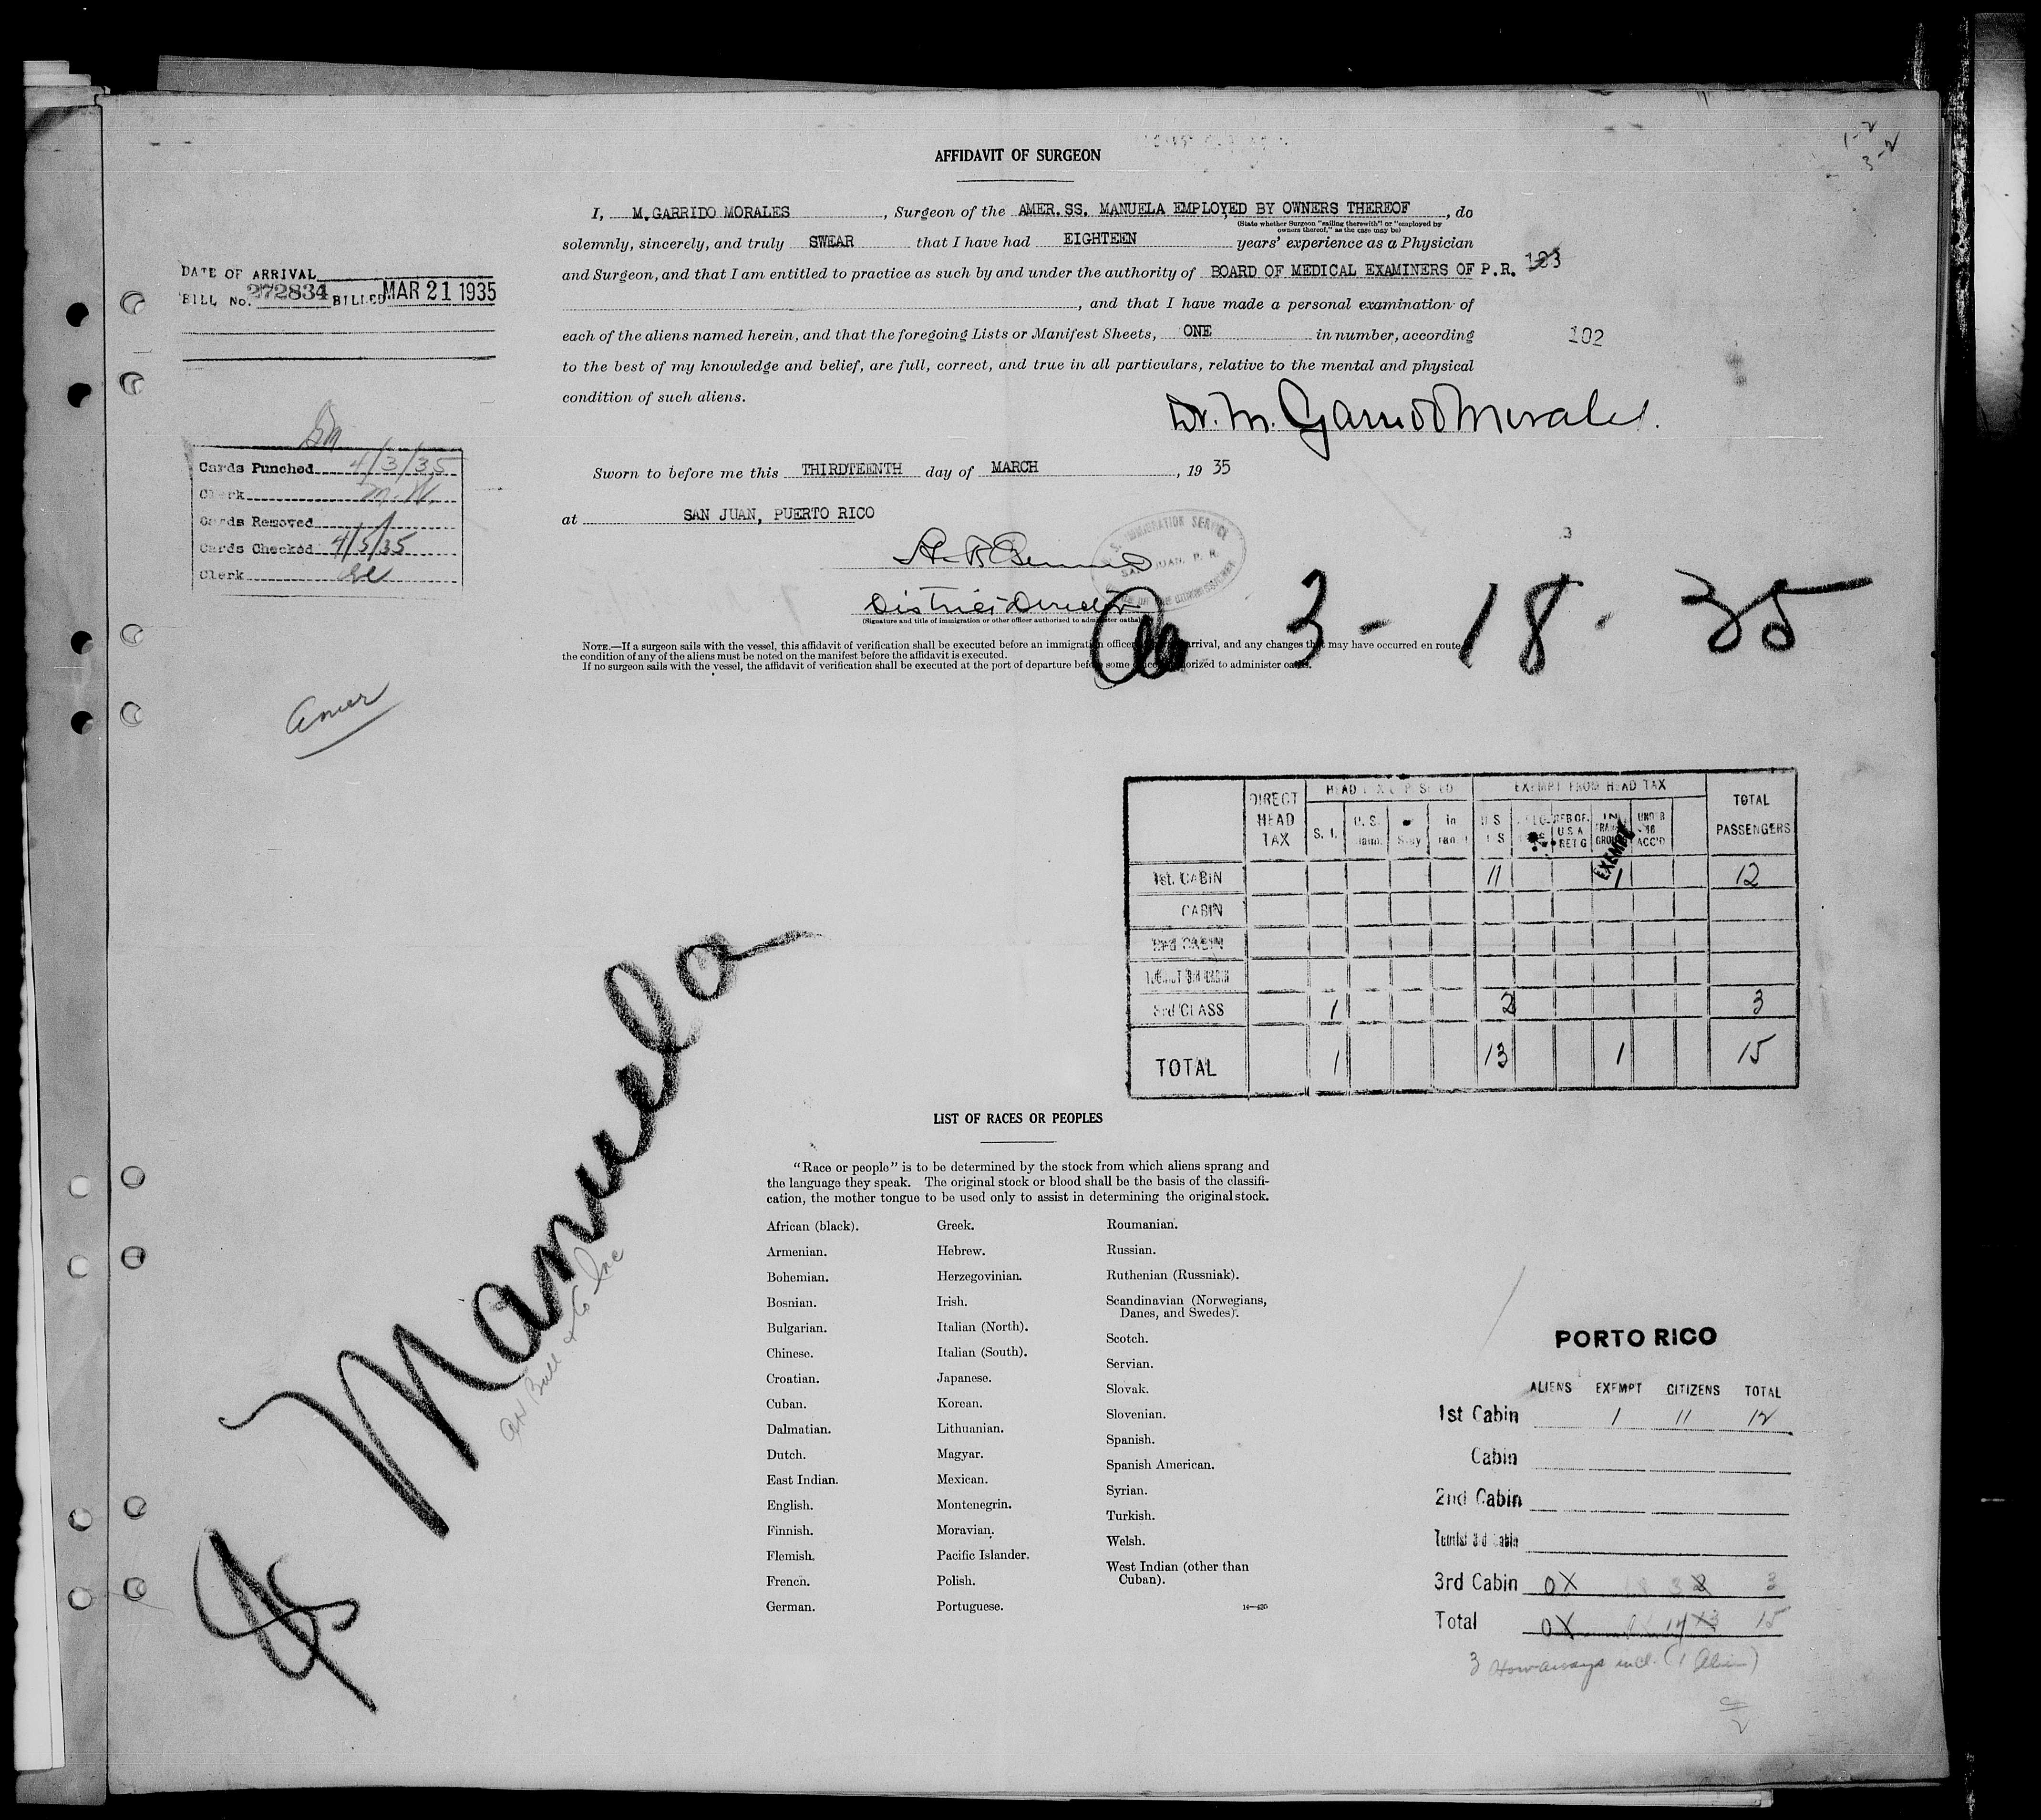 1-2
3-2
AFFIDAVIT OF SURGEON
I, M. GARRIDO MORALES, Surgeon of the AMER. SS. MANUELA EMPLOYED BY OWNERS THEREOF, do
(State whether Surgeon "sailing therewith" or "employed by
owners thereof," as the case may be)
solemnly, sincerely, and truly SWEAR that I have had EIGHTEEN years' experience as a Physician
and Surgeon, and that I am entitled to practice as such by and under the authority of BOARD OF MEDICAL EXAMINERS OF P.R.
, and that I have made a personal examination of
each of the aliens named herein, and that the foregoing Lists or Manifest Sheets, ONE in number, according
102
to the best of my knowledge and belief, are full, correct, and true in all particulars, relative to the mental and physical
condition of such aliens.
Dr. M. Garrido Morales.
DATE OF ARRIVAL
BILL No. 272834 BILLED MAR 21 1935
Cards Punched 4/3/35
Clerk M.W.
Cards Removed
Cards Checked 4/5/35
Clerk
Sworn to before me this THIRDTEENTH day of MARCH, 19 35
at SAN JUAN, PUERTO RICO
IMMIGRATION SERVICE
SAN JUAN, P. R.
District Director
(Signature and title of immigration or other officer authorized to administer oaths)
3 - 18 - 35
NOTE.—If a surgeon sails with the vessel, this affidavit of verification shall be executed before an immigration officer arrival, and any changes that may have occurred en route
the condition of any of the aliens must be noted on the manifest before the affidavit is executed.
If no surgeon sails with the vessel, the affidavit of verification shall be executed at the port of departure before some authorized to administer oaths.
Amer
DIRECT HEAD TAX
EXEMPT FROM HEAD TAX
TOTAL PASSENGERS
S. I. U.S.
EXEMPT
1st. CABIN 11 1 12
CABIN
2nd CABIN
TOURIST 3rd CABIN
3rd CLASS 1 2 3
TOTAL 1 13 1 15
SS Manuela
LIST OF RACES OR PEOPLES
"Race or people" is to be determined by the stock from which aliens sprang and
the language they speak. The original stock or blood shall be the basis of the classifi-
cation, the mother tongue to be used only to assist in determining the original stock.
African (black).
Armenian.
Bohemian.
Bosnian.
Bulgarian.
Chinese.
Croatian.
Cuban.
Dalmatian.
Dutch.
East Indian.
English.
Finnish.
Flemish.
French.
German.
Greek.
Hebrew.
Herzegovinian.
Irish.
Italian (North).
Italian (South).
Japanese.
Korean.
Lithuanian.
Magyar.
Mexican.
Montenegrin.
Moravian.
Pacific Islander.
Polish.
Portuguese.
Roumanian.
Russian.
Ruthenian (Russniak).
Scandinavian (Norwegians,
Danes, and Swedes).
Scotch.
Servian.
Slovak.
Slovenian.
Spanish.
Spanish American.
Syrian.
Turkish.
Welsh.
West Indian (other than
Cuban).
PORTO RICO
ALIENS EXEMPT CITIZENS TOTAL
1st Cabin 1 11 12
Cabin
2nd Cabin
Tourist 3d Cabin
3rd Cabin 0 3 3
Total 0 14 15
3 stowaways incl. (1 Alien)